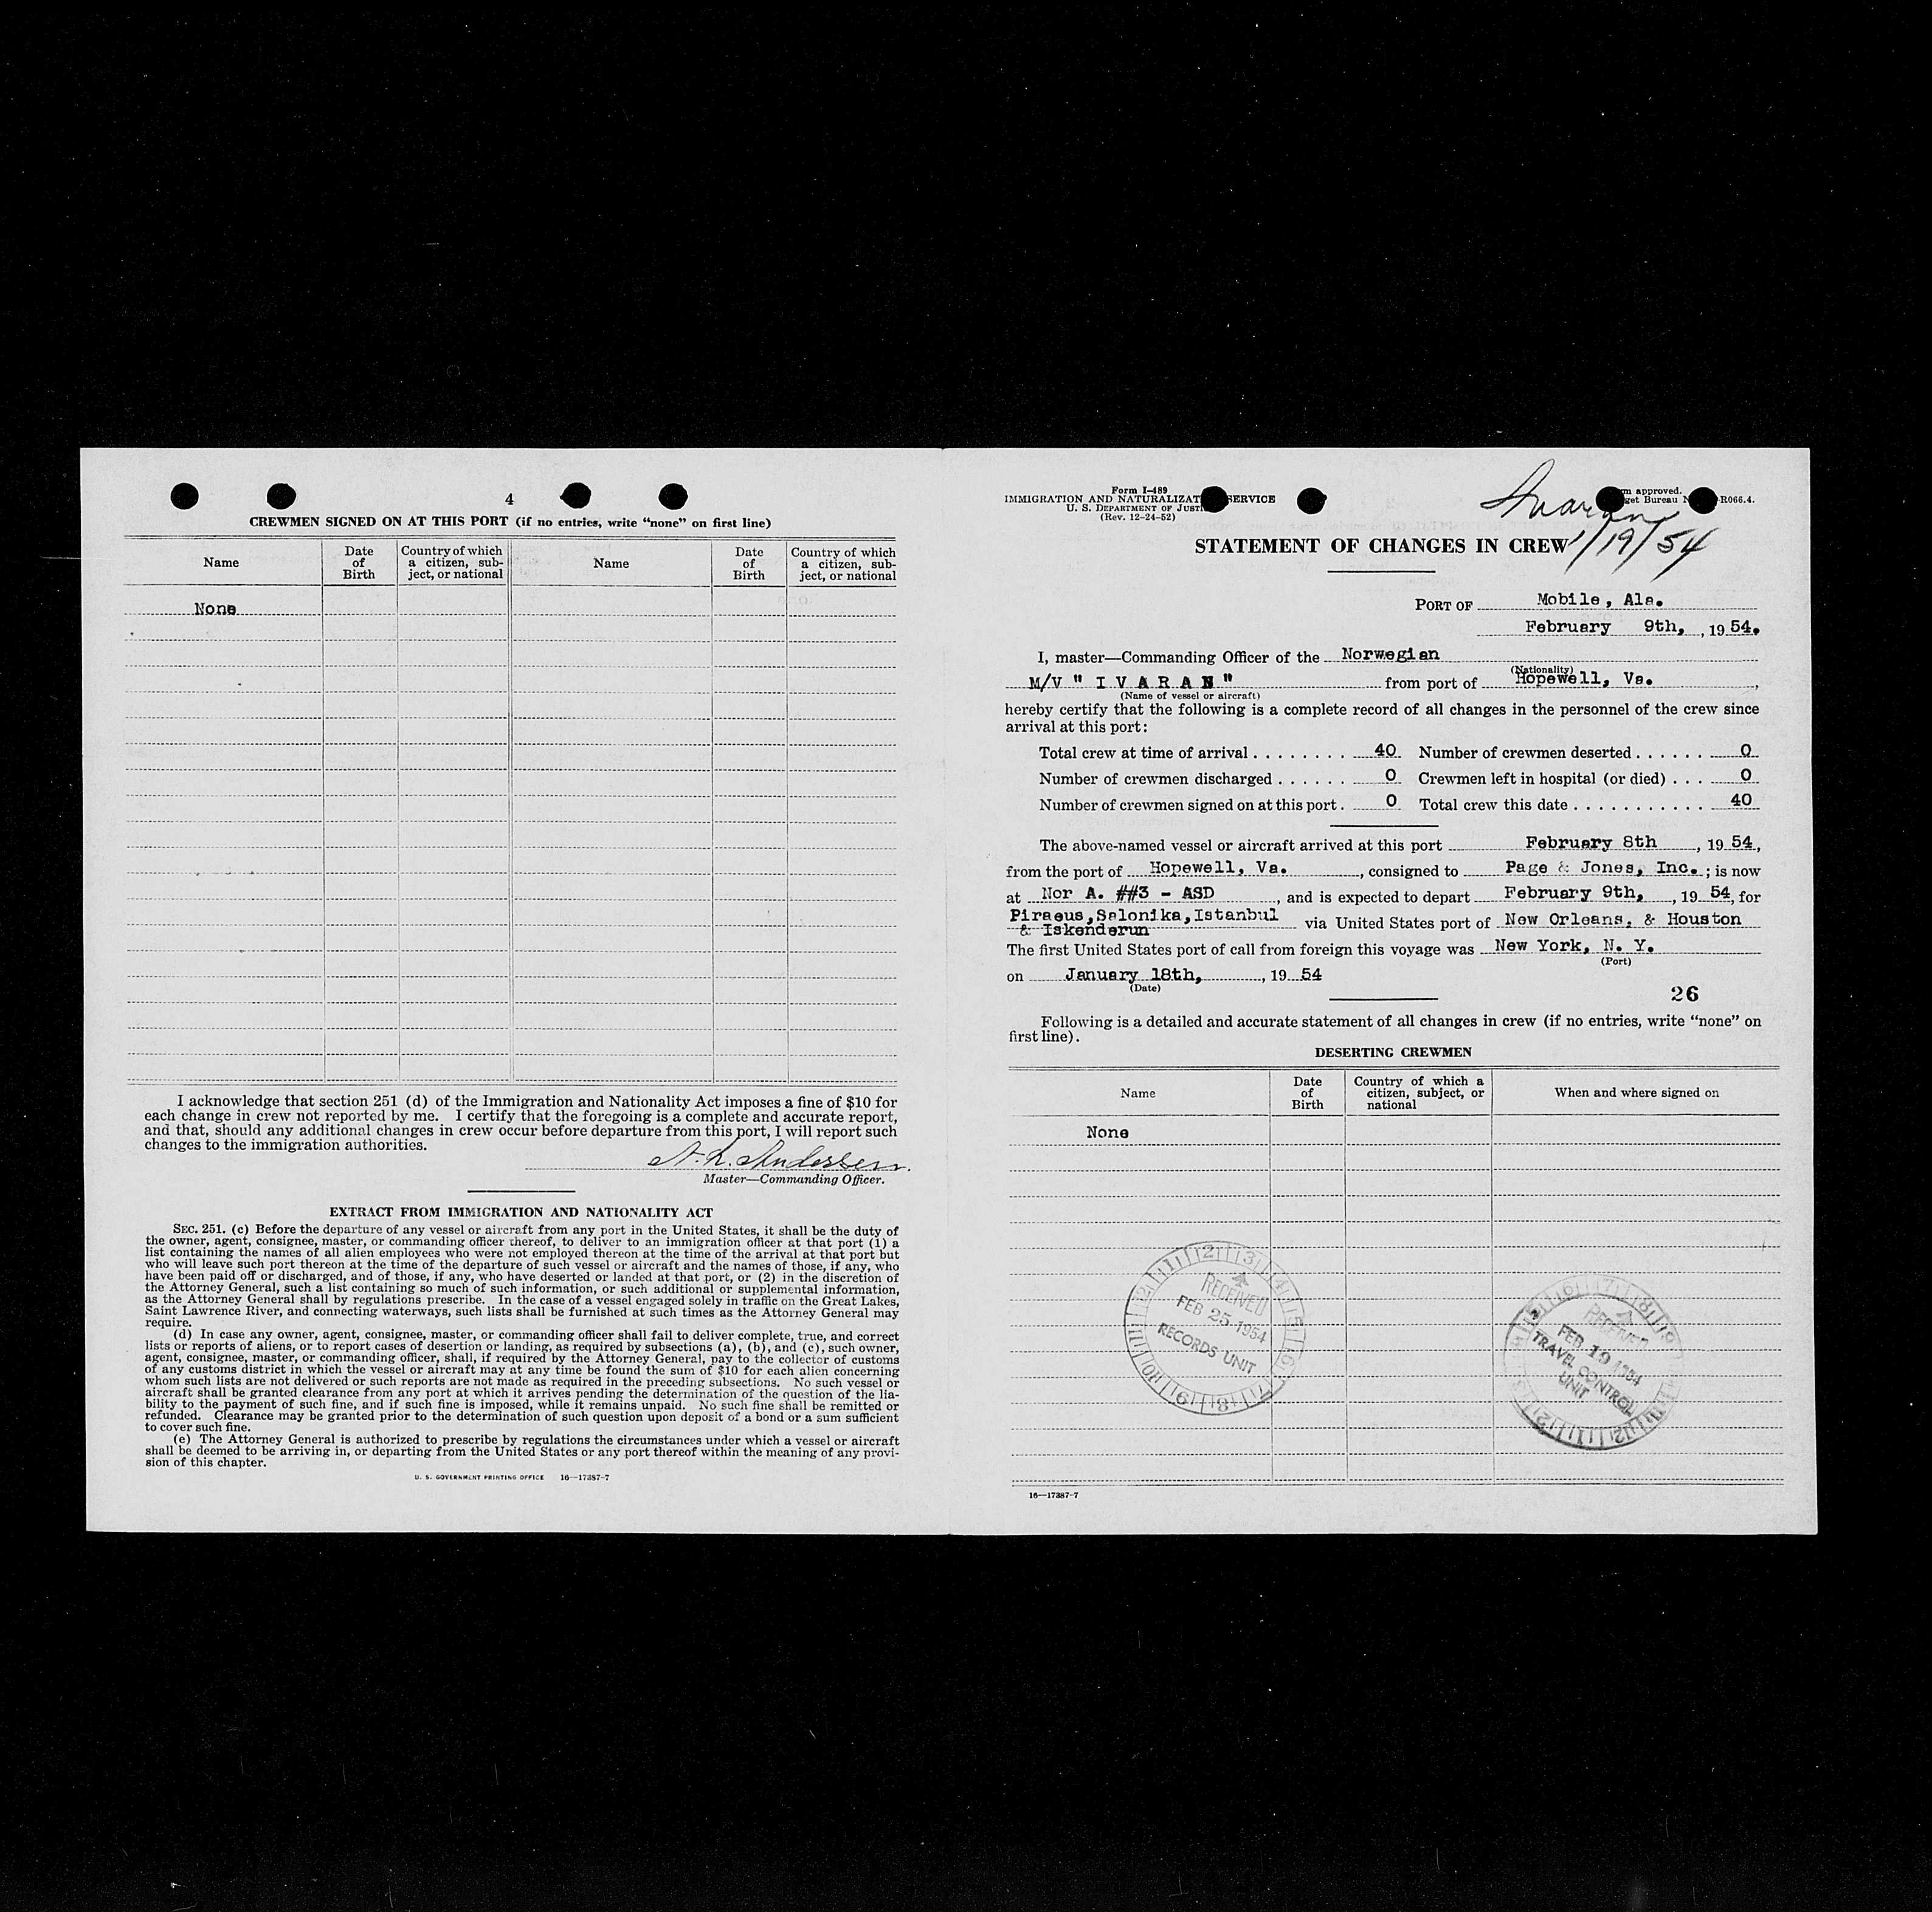 4
CREWMEN SIGNED ON AT THIS PORT (if no entries, write “none” on first line)
Name
Date of Birth
Country of which a citizen, sub-ject, or national
Name
Date of Birth
Country of which a citizen, sub-ject, or national
None
I acknowledge that section 251 (d) of the Immigration and Nationality Act imposes a fine of $10 for
each change in crew not reported by me. I certify that the foregoing is a complete and accurate report,
and that, should any additional changes in crew occur before departure from this port, I will report such
changes to the immigration authorities.
Master—Commanding Officer.
EXTRACT FROM IMMIGRATION AND NATIONALITY ACT
SEC. 251. (c) Before the departure of any vessel or aircraft from any port in the United States, it shall be the duty of
the owner, agent, consignee, master, or commanding officer thereof, to deliver to an immigration officer at that port (1) a
list containing the names of all alien employees who were not employed thereon at the time of the arrival at that port but
who will leave such port thereon at the time of the departure of such vessel or aircraft and the names of those, if any, who
have been paid off or discharged, and of those, if any, who have deserted or landed at that port, or (2) in the discretion of
the Attorney General, such a list containing so much of such information, or such additional or supplemental information,
as the Attorney General shall by regulations prescribe. In the case of a vessel engaged solely in traffic on the Great Lakes,
Saint Lawrence River, and connecting waterways, such lists shall be furnished at such times as the Attorney General may
require.
(d) In case any owner, agent, consignee, master, or commanding officer shall fail to deliver complete, true, and correct
lists or reports of aliens, or to report cases of desertion or landing, as required by subsections (a), (b), and (c), such owner,
agent, consignee, master, or commanding officer, shall, if required by the Attorney General, pay to the collector of customs
of any customs district in which the vessel or aircraft may at any time be found the sum of $10 for each alien concerning
whom such lists are not delivered or such reports are not made as required in the preceding subsections. No such vessel or
aircraft shall be granted clearance from any port at which it arrives pending the determination of the question of the lia-
bility to the payment of such fine, and if such fine is imposed, while it remains unpaid. No such fine shall be remitted or
refunded. Clearance may be granted prior to the determination of such question upon deposit of a bond or a sum sufficient
to cover such fine.
(e) The Attorney General is authorized to prescribe by regulations the circumstances under which a vessel or aircraft
shall be deemed to be arriving in, or departing from the United States or any port thereof within the meaning of any provi-
sion of this chapter.
U. S. GOVERNMENT PRINTING OFFICE 16—17387-7
Form I-489
IMMIGRATION AND NATURALIZAT SERVICE
U. S. DEPARTMENT OF JUSTI
(Rev. 12-24-52)
m approved.
get Bureau N R066.4.
Ivaran
1/19/54
STATEMENT OF CHANGES IN CREW
PORT OF Mobile, Ala.
February 9th, , 19 54.
I, master—Commanding Officer of the Norwegian
(Nationality)
M/V " I V A R A N " from port of Hopewell, Va. ,
(Name of vessel or aircraft)
hereby certify that the following is a complete record of all changes in the personnel of the crew since
arrival at this port:
Total crew at time of arrival . . . . . . . . 40 Number of crewmen deserted . . . . . . 0
Number of crewmen discharged . . . . . . 0 Crewmen left in hospital (or died) . . . 0
Number of crewmen signed on at this port . 0 Total crew this date . . . . . . . . . . . 40
The above-named vessel or aircraft arrived at this port February 8th , 19 54,
from the port of Hopewell, Va. , consigned to Page & Jones, Inc. ; is now
at Nor A. ##3 - ASD , and is expected to depart February 9th, , 19 54, for
Piraeus,Salonika,Istanbul
& Iskenderun via United States port of New Orleans, & Houston
The first United States port of call from foreign this voyage was New York, N. Y.
(Port)
on January 18th, , 19 54
(Date)
26
Following is a detailed and accurate statement of all changes in crew (if no entries, write “none” on
first line).
DESERTING CREWMEN
Name
Date of Birth
Country of which a citizen, subject, or national
When and where signed on
None
RECEIVED
FEB 25 1954
RECORDS UNIT
RECEIVED
FEB 19 1954
TRAVEL CONTROL
UNIT
16—17387-7